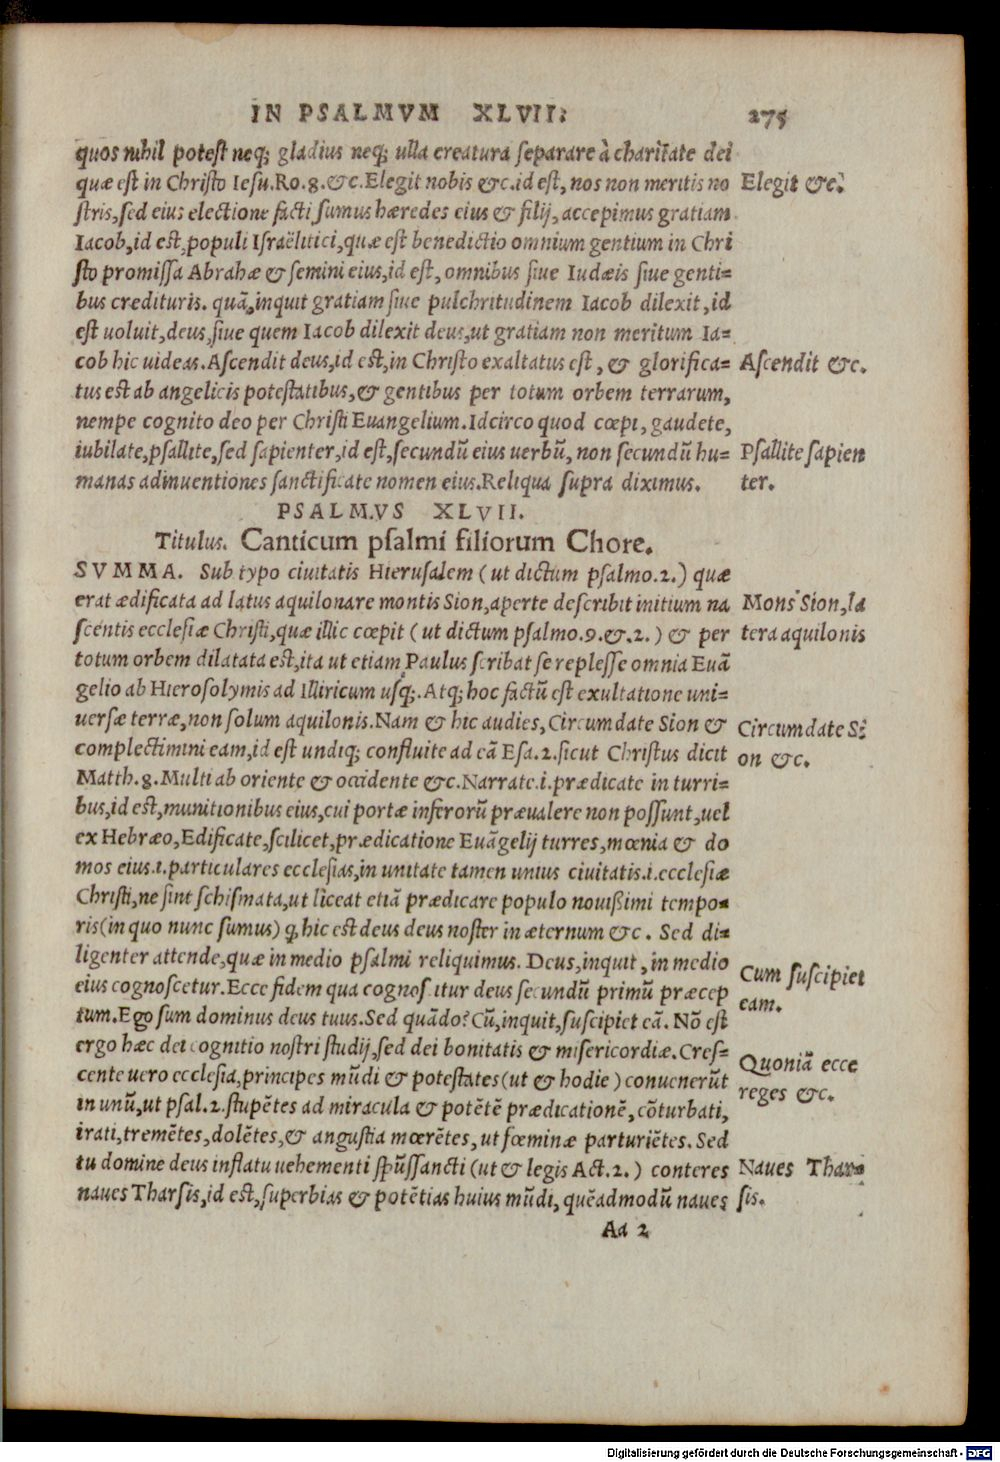 IN PSALMVM XLVII. 275
quos nihil potest neq; gladius neq; ulla creatura separare à charitate dei
quæ est in Christo Iesu. Ro. 8. &c. Elegit nobis &c. id est, nos non meritis no
Elegit &c.
stris, sed eius electione facti sumus hæredes eius & filij, accepimus gratiam
Iacob, id est, populi Israëlitici, quæ est benedictio omnium gentium in Chri
sto promissa Abrahæ & semini eius, id est, omnibus siue Iudæis siue genti=
bus credituris. quā, inquit gratiam siue pulchritudinem Iacob dilexit, id
est uoluit, deus, siue quem Iacob dilexit deus, ut gratiam non meritum Ia=
cob hic uideas. Ascendit deus, id est, in Christo exaltatus est, & glorifica=
Ascendit &c.
tus est ab angelicis potestatibus, & gentibus per totum orbem terrarum,
nempe cognito deo per Christi Euangelium. Idcirco quod cœpi, gaudete,
iubilate, psallite, sed sapienter, id est, secundū eius uerbū, non secundū hu=
Psallite sapien
manas adinuentiones sanctificate nomen eius. Reliqua supra diximus.
ter.
PSALMVS XLVII.
Titulus. Canticum psalmi filiorum Chore.
SVMMA. Sub typo ciuitatis Hierusalem (ut dictum psalmo. 2.) quæ
erat ædificata ad latus aquilonare montis Sion, aperte describit initium na
Mons Sion, la
scentis ecclesiæ Christi, quæ illic cœpit (ut dictum psalmo. 9. &. 2.) & per
tera aquilonis
totum orbem dilatata est, ita ut etiam Paulus scribat se replesse omnia Euā
gelio ab Hierosolymis ad Illiricum usq;. Atq; hoc factū est exultatione uni=
uersæ terræ, non solum aquilonis. Nam & hic audies, Circumdate Sion &
Circumdate Si
complectimini eam, id est undiq; confluite ad eā Esa. 2. sicut Christus dicit
on &c.
Matth. 8. Multi ab oriente & occidente &c. Narrate. i. prædicate in turri=
bus, id est, munitionibus eius, cui portæ inferorū præualere non possunt, uel
ex Hebræo, Edificate, scilicet, prædicatione Euāgelij turres, mœnia & do
mos eius. i. particulares ecclesias, in unitate tamen unius ciuitatis. i. ecclesiæ
Christi, ne sint schismata, ut liceat etiā prædicare populo nouißimi tempo=
ris (in quo nunc sumus) q, hic est deus deus noster in æternum &c. Sed di=
ligenter attende, quæ in medio psalmi reliquimus. Deus, inquit, in medio
Cum suscipiet
eius cognoscetur. Ecce fidem qua cognoscitur deus secundū primū præcep
eam.
tum. Ego sum dominus deus tuus. Sed quādo? Cū, inquit, suscipiet eā. Nō est
ergo hæc dei cognitio nostri studij, sed dei bonitatis & misericordiæ. Cres=
Quoniā ecce
cente uero ecclesia, principes mūdi & potestates (ut & hodie) conuenerūt
reges &c.
in unū, ut psal. 2. stupētes ad miracula & potētē prædicationē, cōturbati,
irati, tremētes, dolētes, & angustia mœrētes, ut fœminæ parturiētes. Sed
tu domine deus inflatu uehementi spūssancti (ut & legis Act. 2.) conteres
Naues Thar=
naues Tharsis, id est, superbias & potētias huius mūdi, quēadmodū naues
sis.
Aa 2
Digitalisierung gefördert durch die Deutsche Forschungsgemeinschaft - DFG